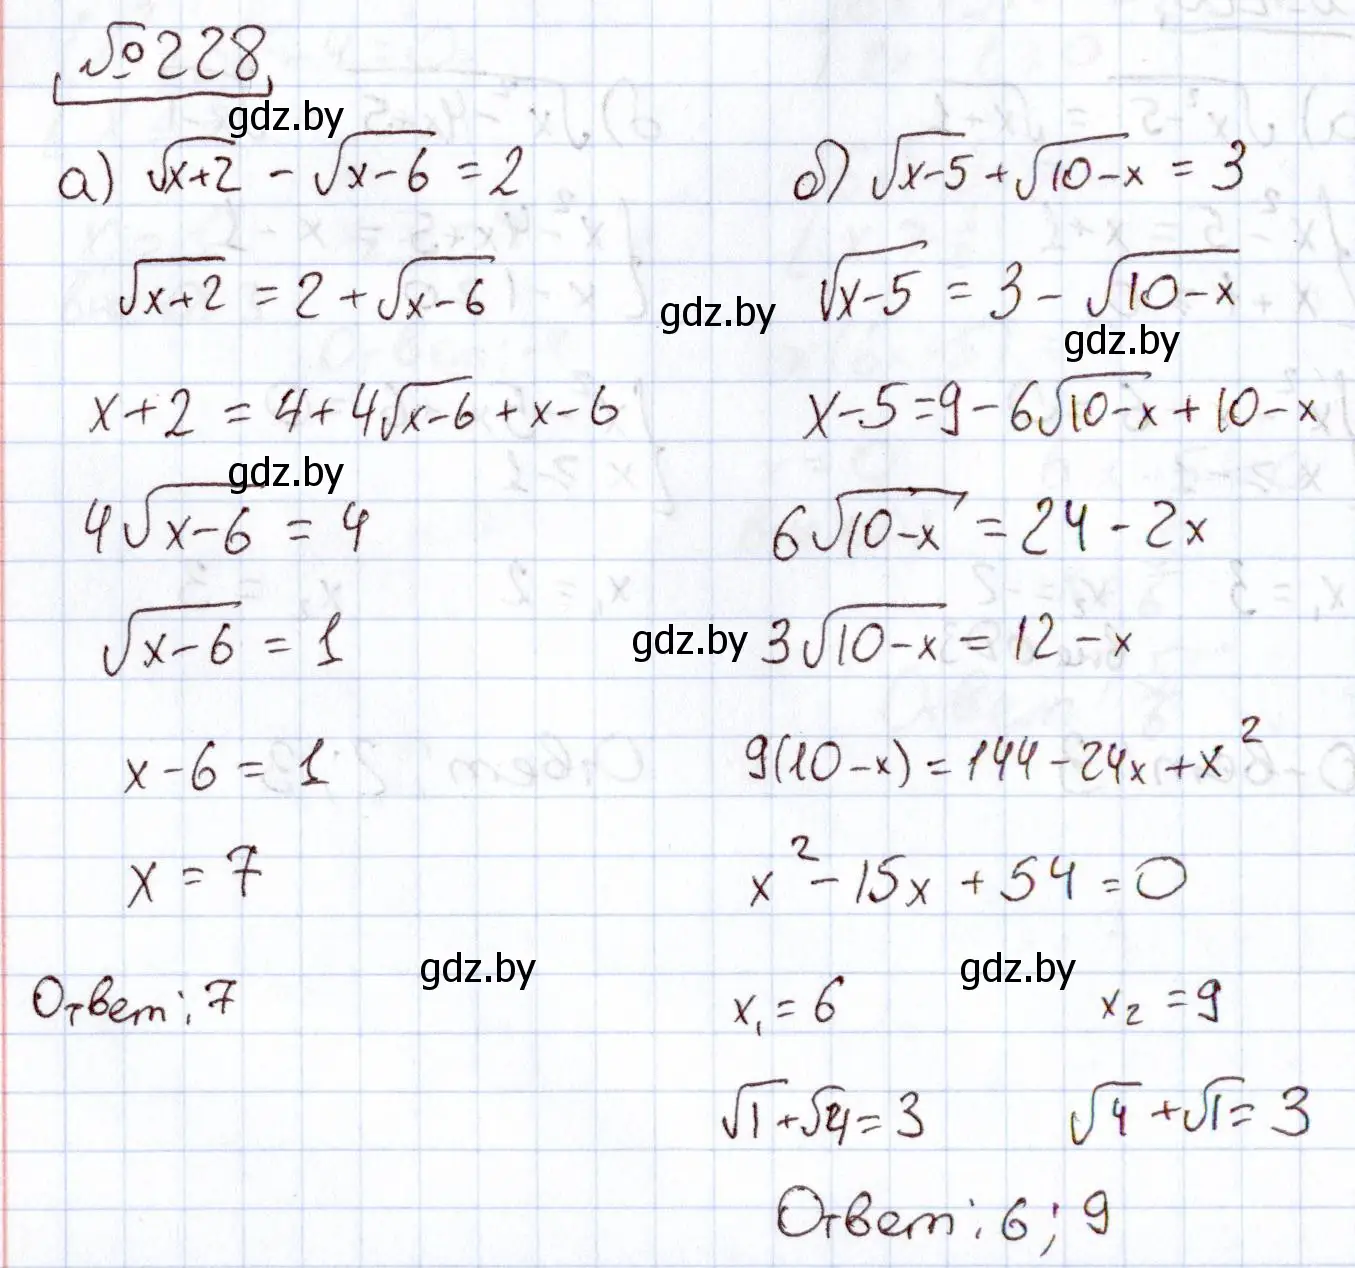 №228
gdz.by
а) √(x+2) - √(x-6) = 2
√(x+2) = 2 + √(x-6)
x+2 = 4+4√(x-6)+x-6
gdz.by
4√(x-6) = 4
√(x-6) = 1
x-6 = 1
x = 7
Ответ: 7
gdz.by
gdz.by
gdz.by
б) √(x-5) + √(10-x) = 3
√(x-5) = 3 - √(10-x)
gdz.by
x-5=9-6√(10-x)+10-x
6√(10-x) = 24-2x
3√(10-x) = 12-x
9(10-x) = 144-24x+x²
x²-15x+54=0
gdz.by
x₁ = 6 x₂ = 9
√1+√4=3 √4+√1=3
Ответ: 6; 9